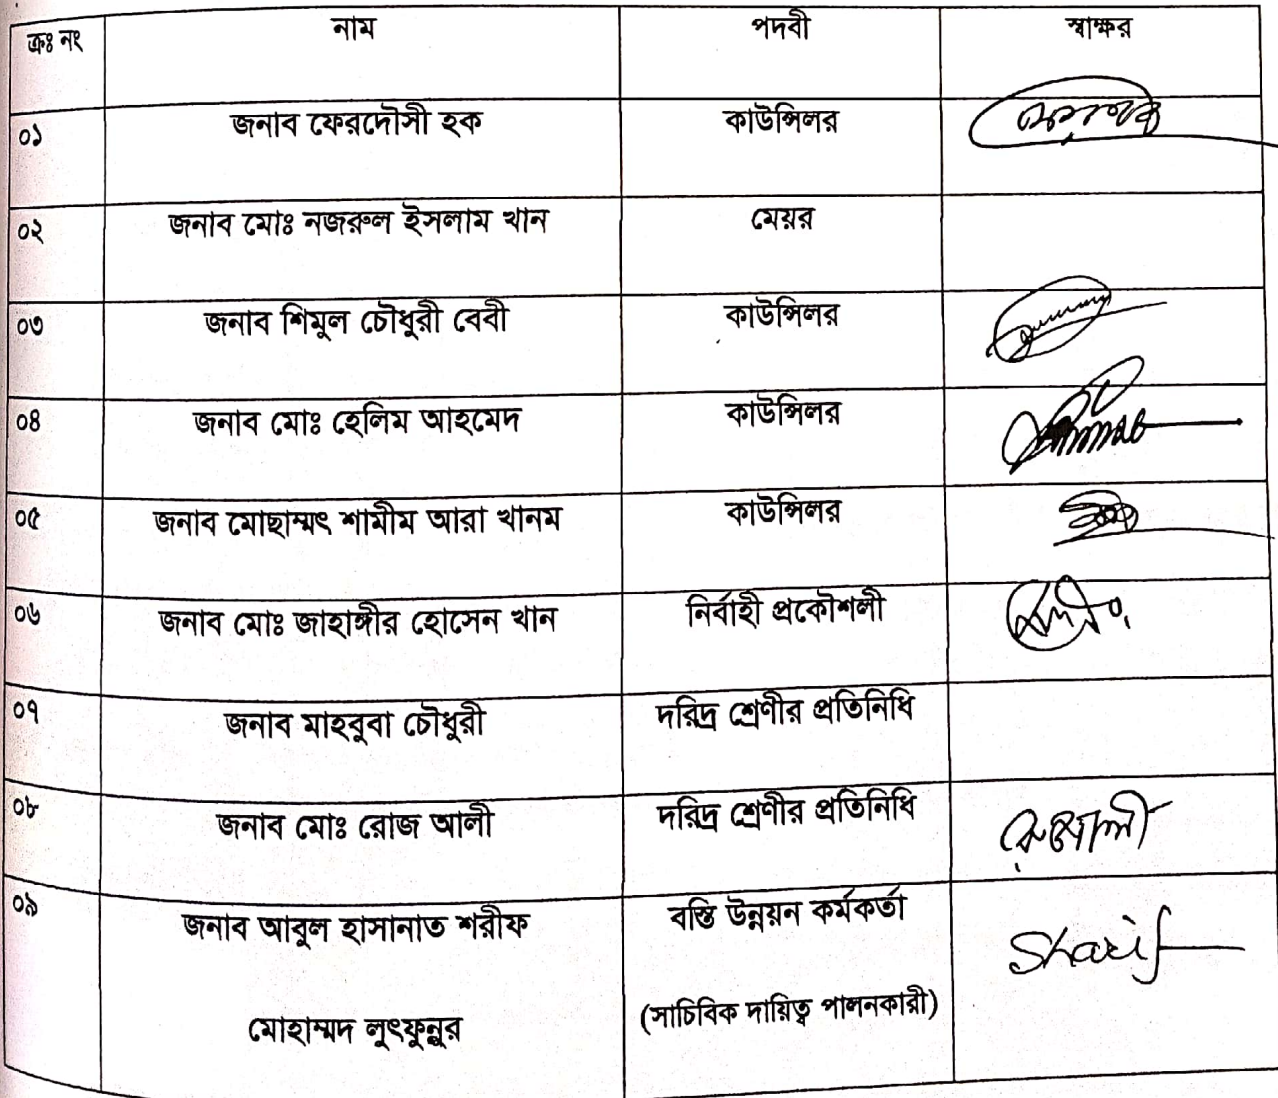 ক্রঃ নং নাম পদবী স্বাক্ষর
০১ জনাব ফেরদৌসী হক কাউন্সিলর
০২ জনাব মোঃ নজরুল ইসলাম খান মেয়র
০৩ জনাব শিমুল চৌধুরী বেবী কাউন্সিলর
০৪ জনাব মোঃ হেলিম আহমেদ কাউন্সিলর
০৫ জনাব মোছাম্মৎ শামীম আরা খানম কাউন্সিলর
০৬ জনাব মোঃ জাহাঙ্গীর হোসেন খান নির্বাহী প্রকৌশলী
০৭ জনাব মাহবুবা চৌধুরী দরিদ্র শ্রেণীর প্রতিনিধি
০৮ জনাব মোঃ রোজ আলী দরিদ্র শ্রেণীর প্রতিনিধি
০৯ জনাব আবুল হাসানাত শরীফ বস্তি উন্নয়ন কর্মকর্তা Sharif
মোহাম্মদ লুৎফুন্নুর (সাচিবিক দায়িত্ব পালনকারী)